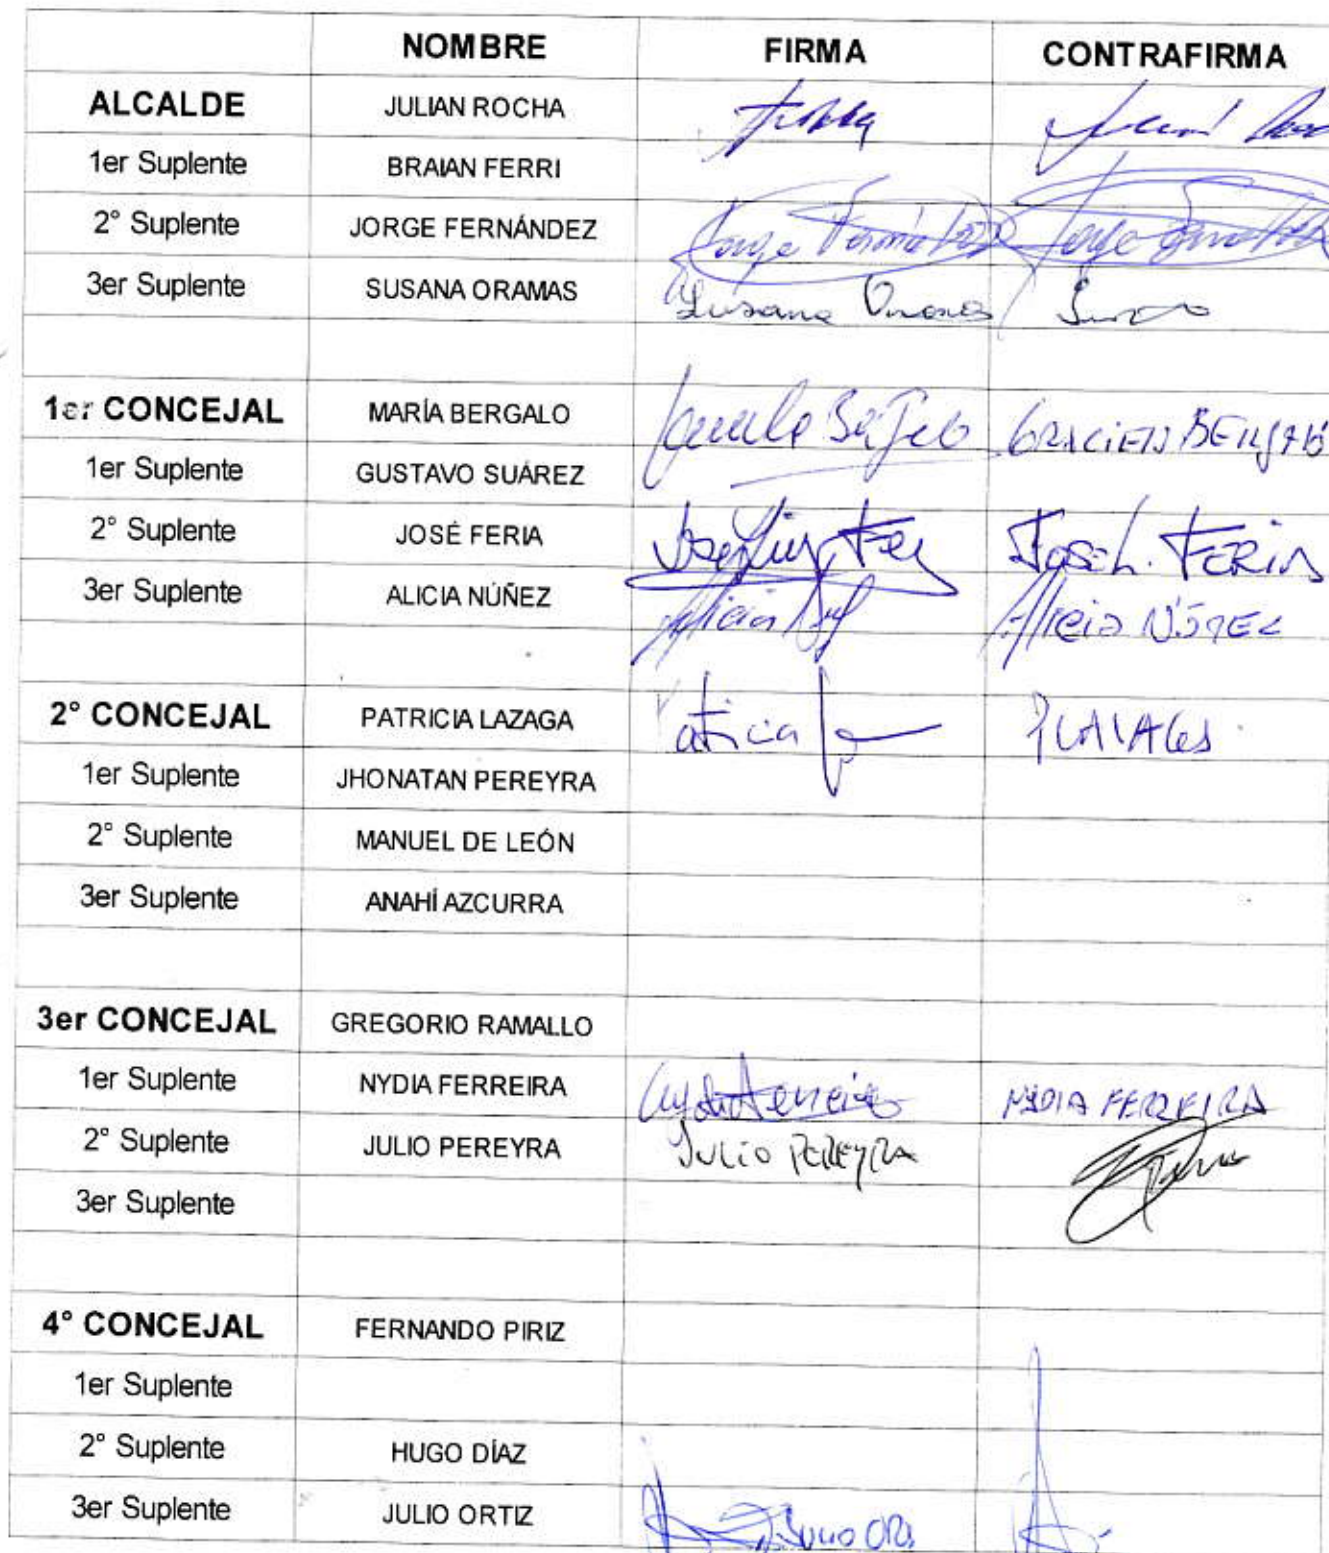 NOMBRE FIRMA CONTRAFIRMA
ALCALDE JULIAN ROCHA
1er Suplente BRAIAN FERRI
2° Suplente JORGE FERNÁNDEZ Jorge Fernández
3er Suplente SUSANA ORAMAS Susana Oramas
1er CONCEJAL MARÍA BERGALO
1er Suplente GUSTAVO SUÁREZ
2° Suplente JOSÉ FERIA José L. FERIA
3er Suplente ALICIA NÚÑEZ Alicia Alicia NÚÑEZ
2° CONCEJAL PATRICIA LAZAGA Patricia
1er Suplente JHONATAN PEREYRA
2° Suplente MANUEL DE LEÓN
3er Suplente ANAHÍ AZCURRA
3er CONCEJAL GREGORIO RAMALLO
1er Suplente NYDIA FERREIRA Nydia Ferreira NYDIA FERREIRA
2° Suplente JULIO PEREYRA JULIO PEREYRA
3er Suplente
4° CONCEJAL FERNANDO PIRIZ
1er Suplente
2° Suplente HUGO DÍAZ
3er Suplente JULIO ORTIZ Julio